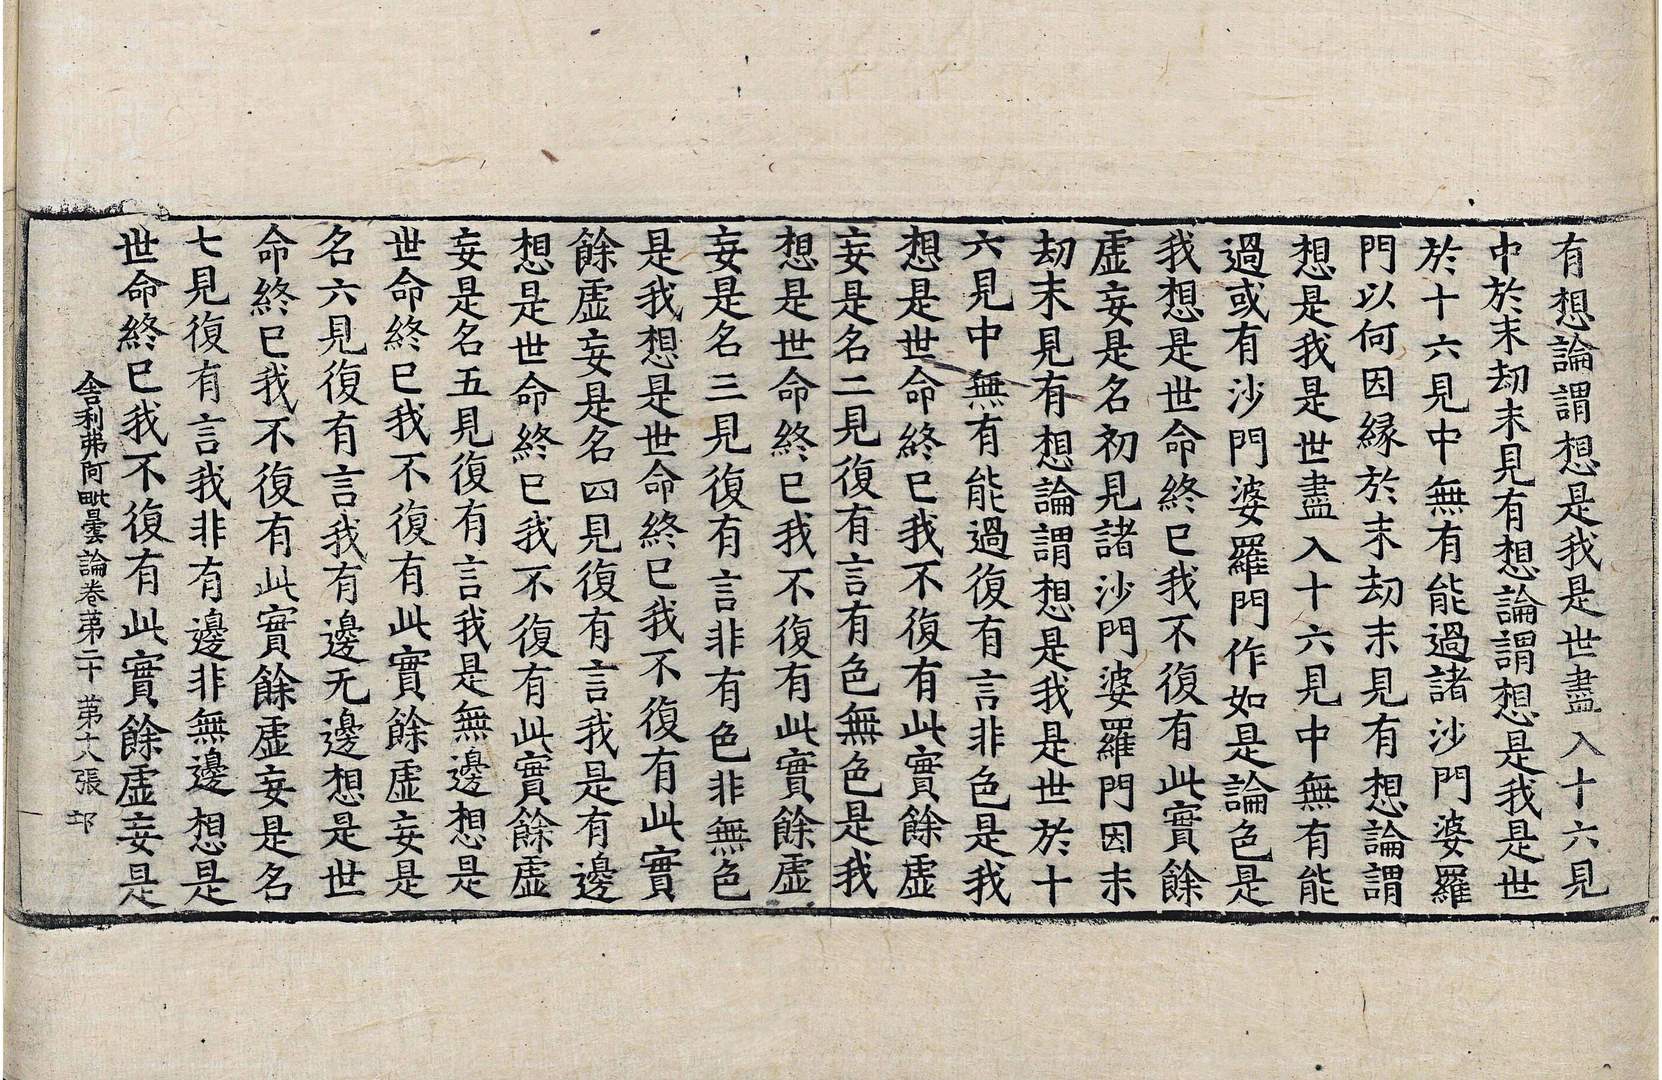 有想論謂想是我是世盡入十六見
中於末劫末見有想論謂想是我是世
於十六見中無有能過諸沙門婆羅
門以何因縁於末劫末見有想論謂
想是我是世盡入十六見中無有能
過或有沙門婆羅門作如是論色是
我想是世命終已我不復有此實餘
虛妄是名初見諸沙門婆羅門因末
劫末見有想論謂想是我是世於十
六見中無有能過復有言非色是我
想是世命終已我不復有此實餘虛
妄是名二見復有言有色無色是我
想是世命終已我不復有此實餘虛
妄是名三見復有言非有色非無色
是我想是世命終已我不復有此實
餘虛妄是名四見復有言我是有邊
想是世命終已我不復有此實餘虛
妄是名五見復有言我是無邊想是
世命終已我不復有此實餘虛妄是
名六見復有言我有邊无邊想是世
命終已我不復有此實餘虛妄是名
七見復有言我非有邊非無邊想是
世命終已我不復有此實餘虛妄是
舍利弗阿毗曇論卷苐二十 苐十八張